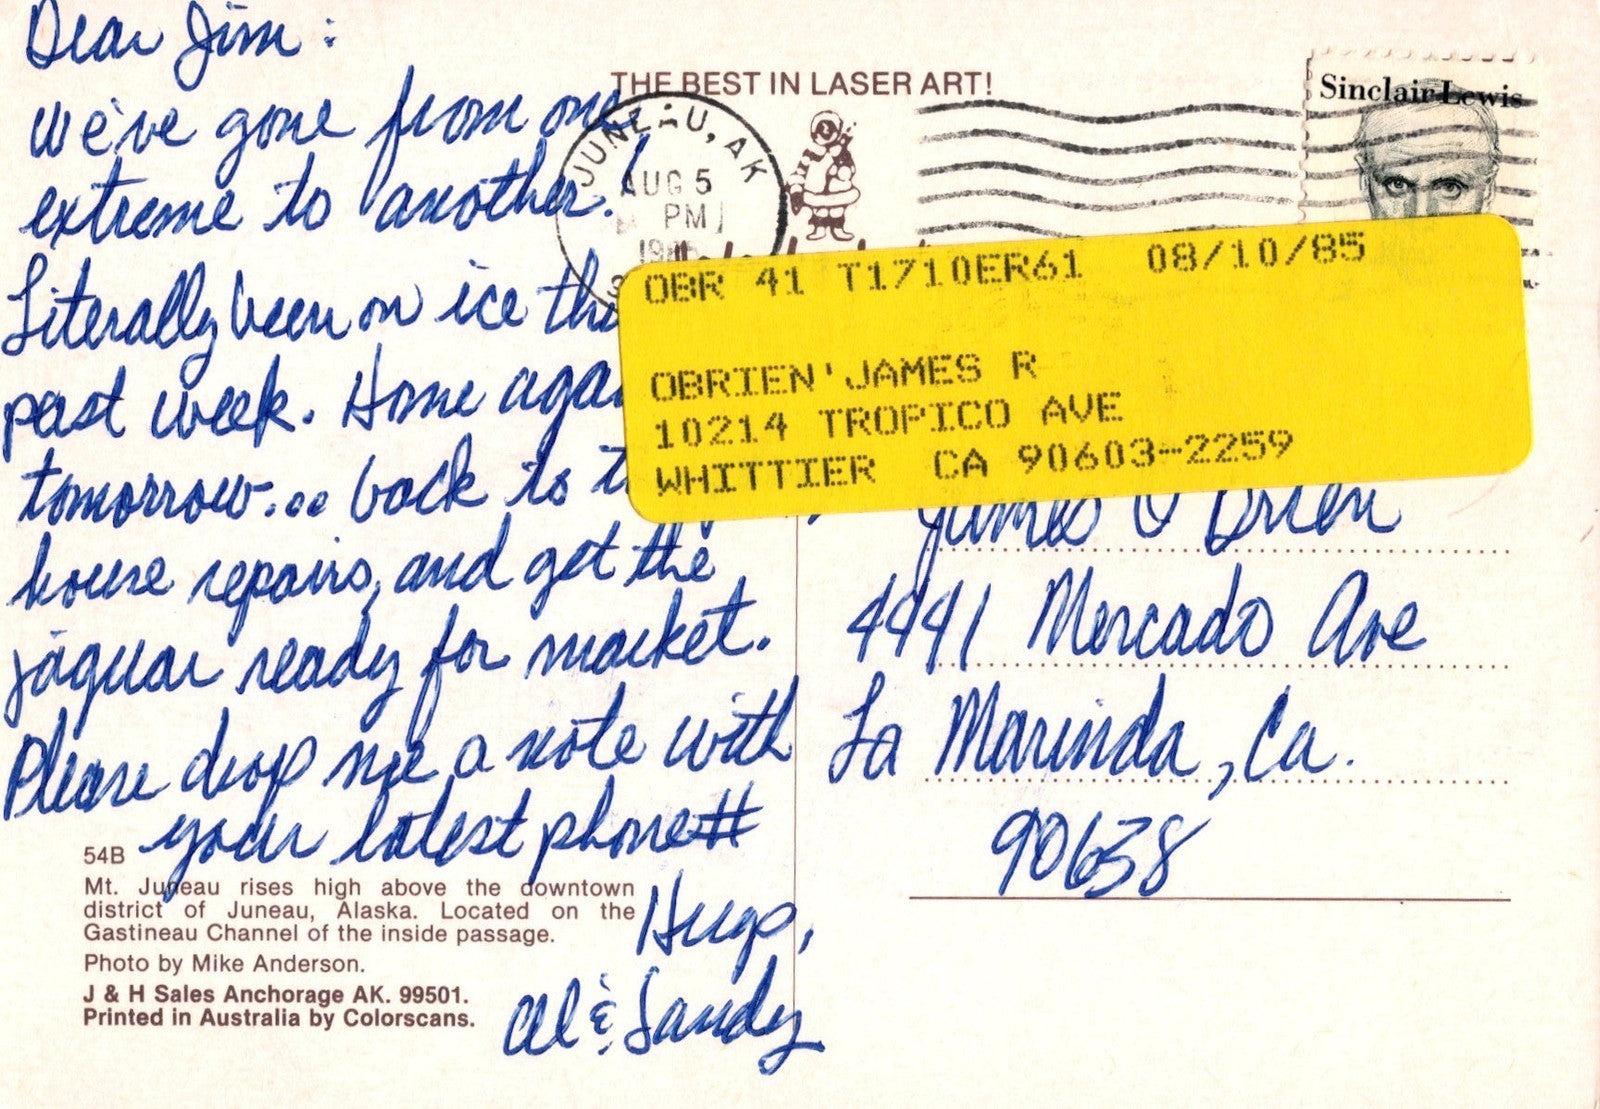 Dear Jim:
We've gone from one
extreme to another!
Literally been on ice
past week. Home
tomorrow... back to
house repairs, and get the
jaguar ready for market.
Please drop me a note with
your latest phone#
Hugs,
Al & Sandy
54B
Mt. Juneau rises high above the downtown
district of Juneau, Alaska. Located on the
Gastineau Channel of the inside passage.
Photo by Mike Anderson.
J & H Sales Anchorage AK. 99501.
Printed in Australia by Colorscans.
THE BEST IN LASER ART!
JUNEAU, AK
AUG 5
PM
Sinclair Lewis
OBR 41 T1710ER61 08/10/85
OBRIEN'JAMES R
10214 TROPICO AVE
WHITTIER CA 90603-2259
James O'Brien
4441 Mercado Ave
La Marinda, Ca.
90638